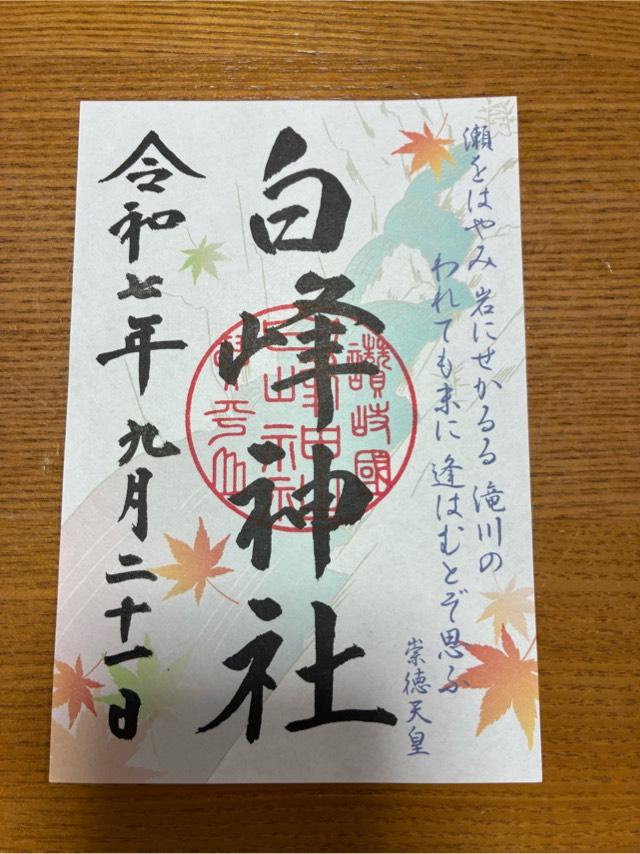 瀬をはやみ 岩にせかるる 滝川の
われても末に 逢はむとぞ思ふ
崇徳天皇
白峰神社
讃岐國
令和七年 九月二十一日